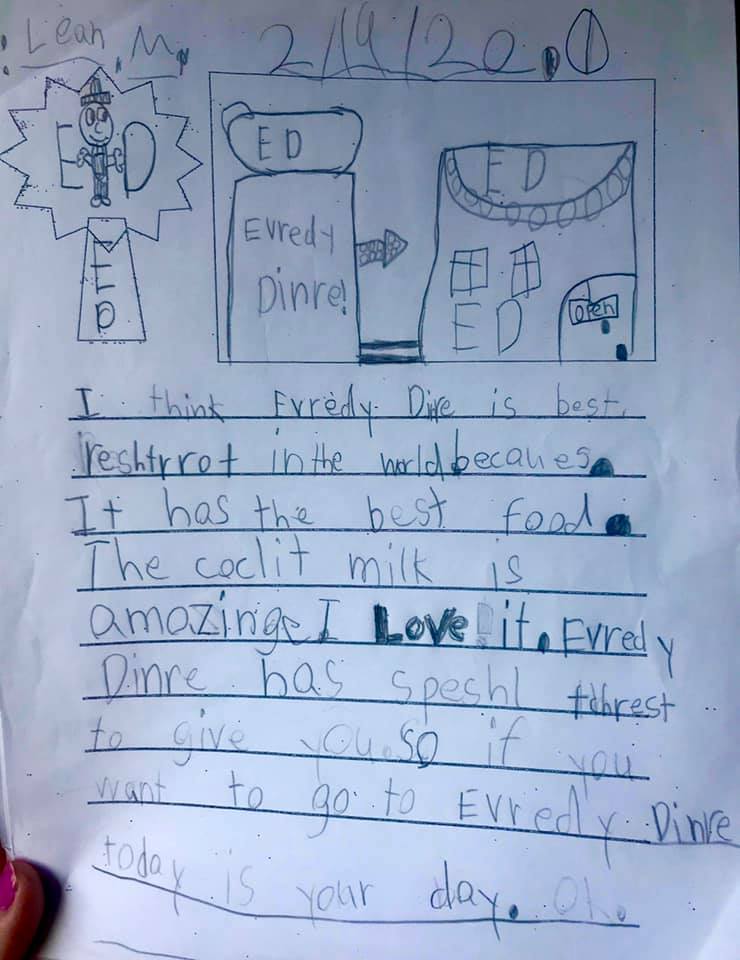 : Leah M. 2/19/20.0
E D
ED
E D
Evredy
Dinre!
E D
E D
open
I think Evredy Dire is best.
reshtrrot in the world becaues.
It has the best food.
The coclit milk is
amazinge I Love it. Evredy
Dinre has speshl tthrest
to give you. so if you
want to go to Evredy Dinre
today is your day. Oh.